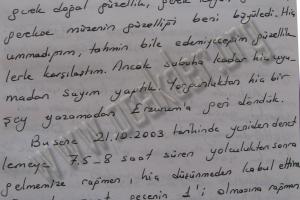 gerek doğal güzellik, gerek
gerekse müzenin güzelliği beni büyüledi. Hiç
ummadığım, tahmin bile edemiyeceğim güzellik
lerle karşılaştım. Ancak sabaha kadar hiç uyu
madan sayım yaptık. Yorgunluktan hiç bir
şey yazamadan Erzurum'a geri döndük.
Bu sene 21.10.2003 tarihinde yeniden denet
lemeye 7.5-8 saat süren yolculuktan sonra
gelmemize rağmen, hiç düşünmeden kabul ettim.
gecenin 1'i olmasına rağmen